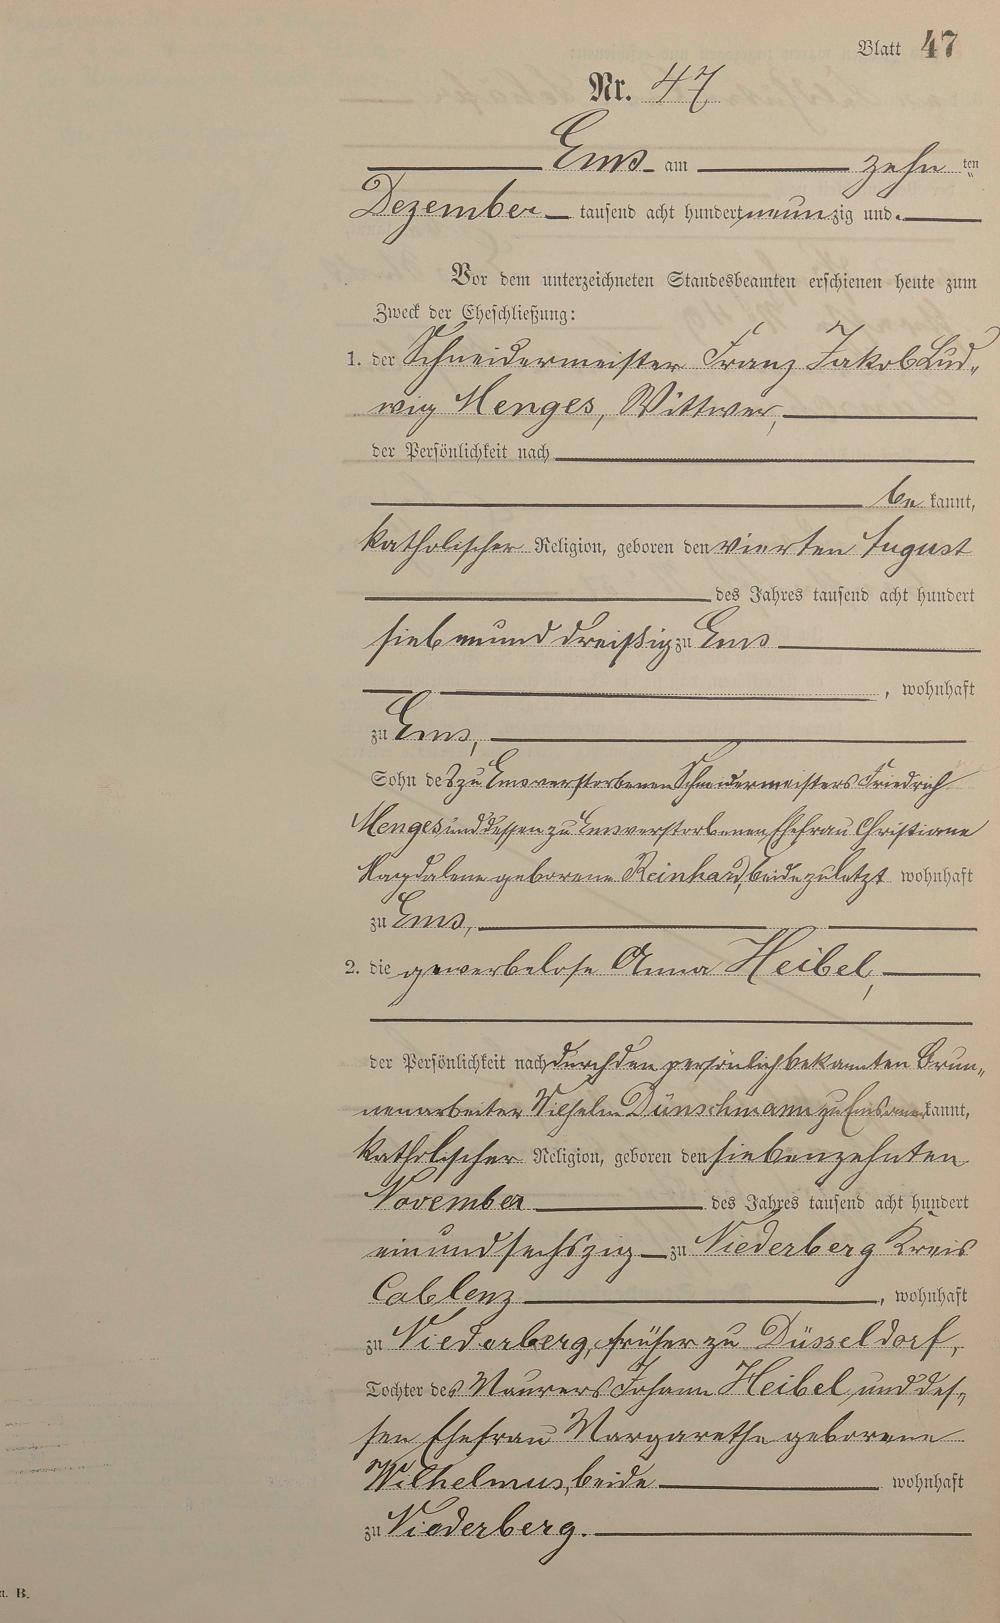 Blatt 47
Nr. 47
Ems am zehn ten
Dezember tausend acht hundert neunzig und
Vor dem unterzeichneten Standesbeamten erschienen heute zum
Zweck der Eheschließung:
1. der Schneidermeister Franz Jakob Lud-
wig Menges, Wittwer,
der Persönlichkeit nach
be kannt,
katholischer Religion, geboren den vierten August
des Jahres tausend acht hundert
siebenunddreißig zu Ems
, wohnhaft
zu Ems,
Sohn des zu Ems verstorbenen Schneidermeisters Friedrich
Menges und dessen zu Ems verstorbenen Ehefrau Christiane
Magdalene geborene Reinhard, beide zuletzt wohnhaft
zu Ems,
2. die gewerbelose Anna Heibel,
der Persönlichkeit nach durch den persönlich bekannten Brun-
nenarbeiter Wilhelm Dünschmann zu Ems anerkannt,
katholischer Religion, geboren den siebenzehnten
November des Jahres tausend acht hundert
einundsechszig zu Niederberg Kreis
Coblenz, wohnhaft
zu Niederberg, früher zu Düsseldorf,
Tochter des Maurers Johann Heibel und des-
sen Ehefrau Margarethe geborene
Wilhelmus, beide wohnhaft
zu Niederberg.
B.